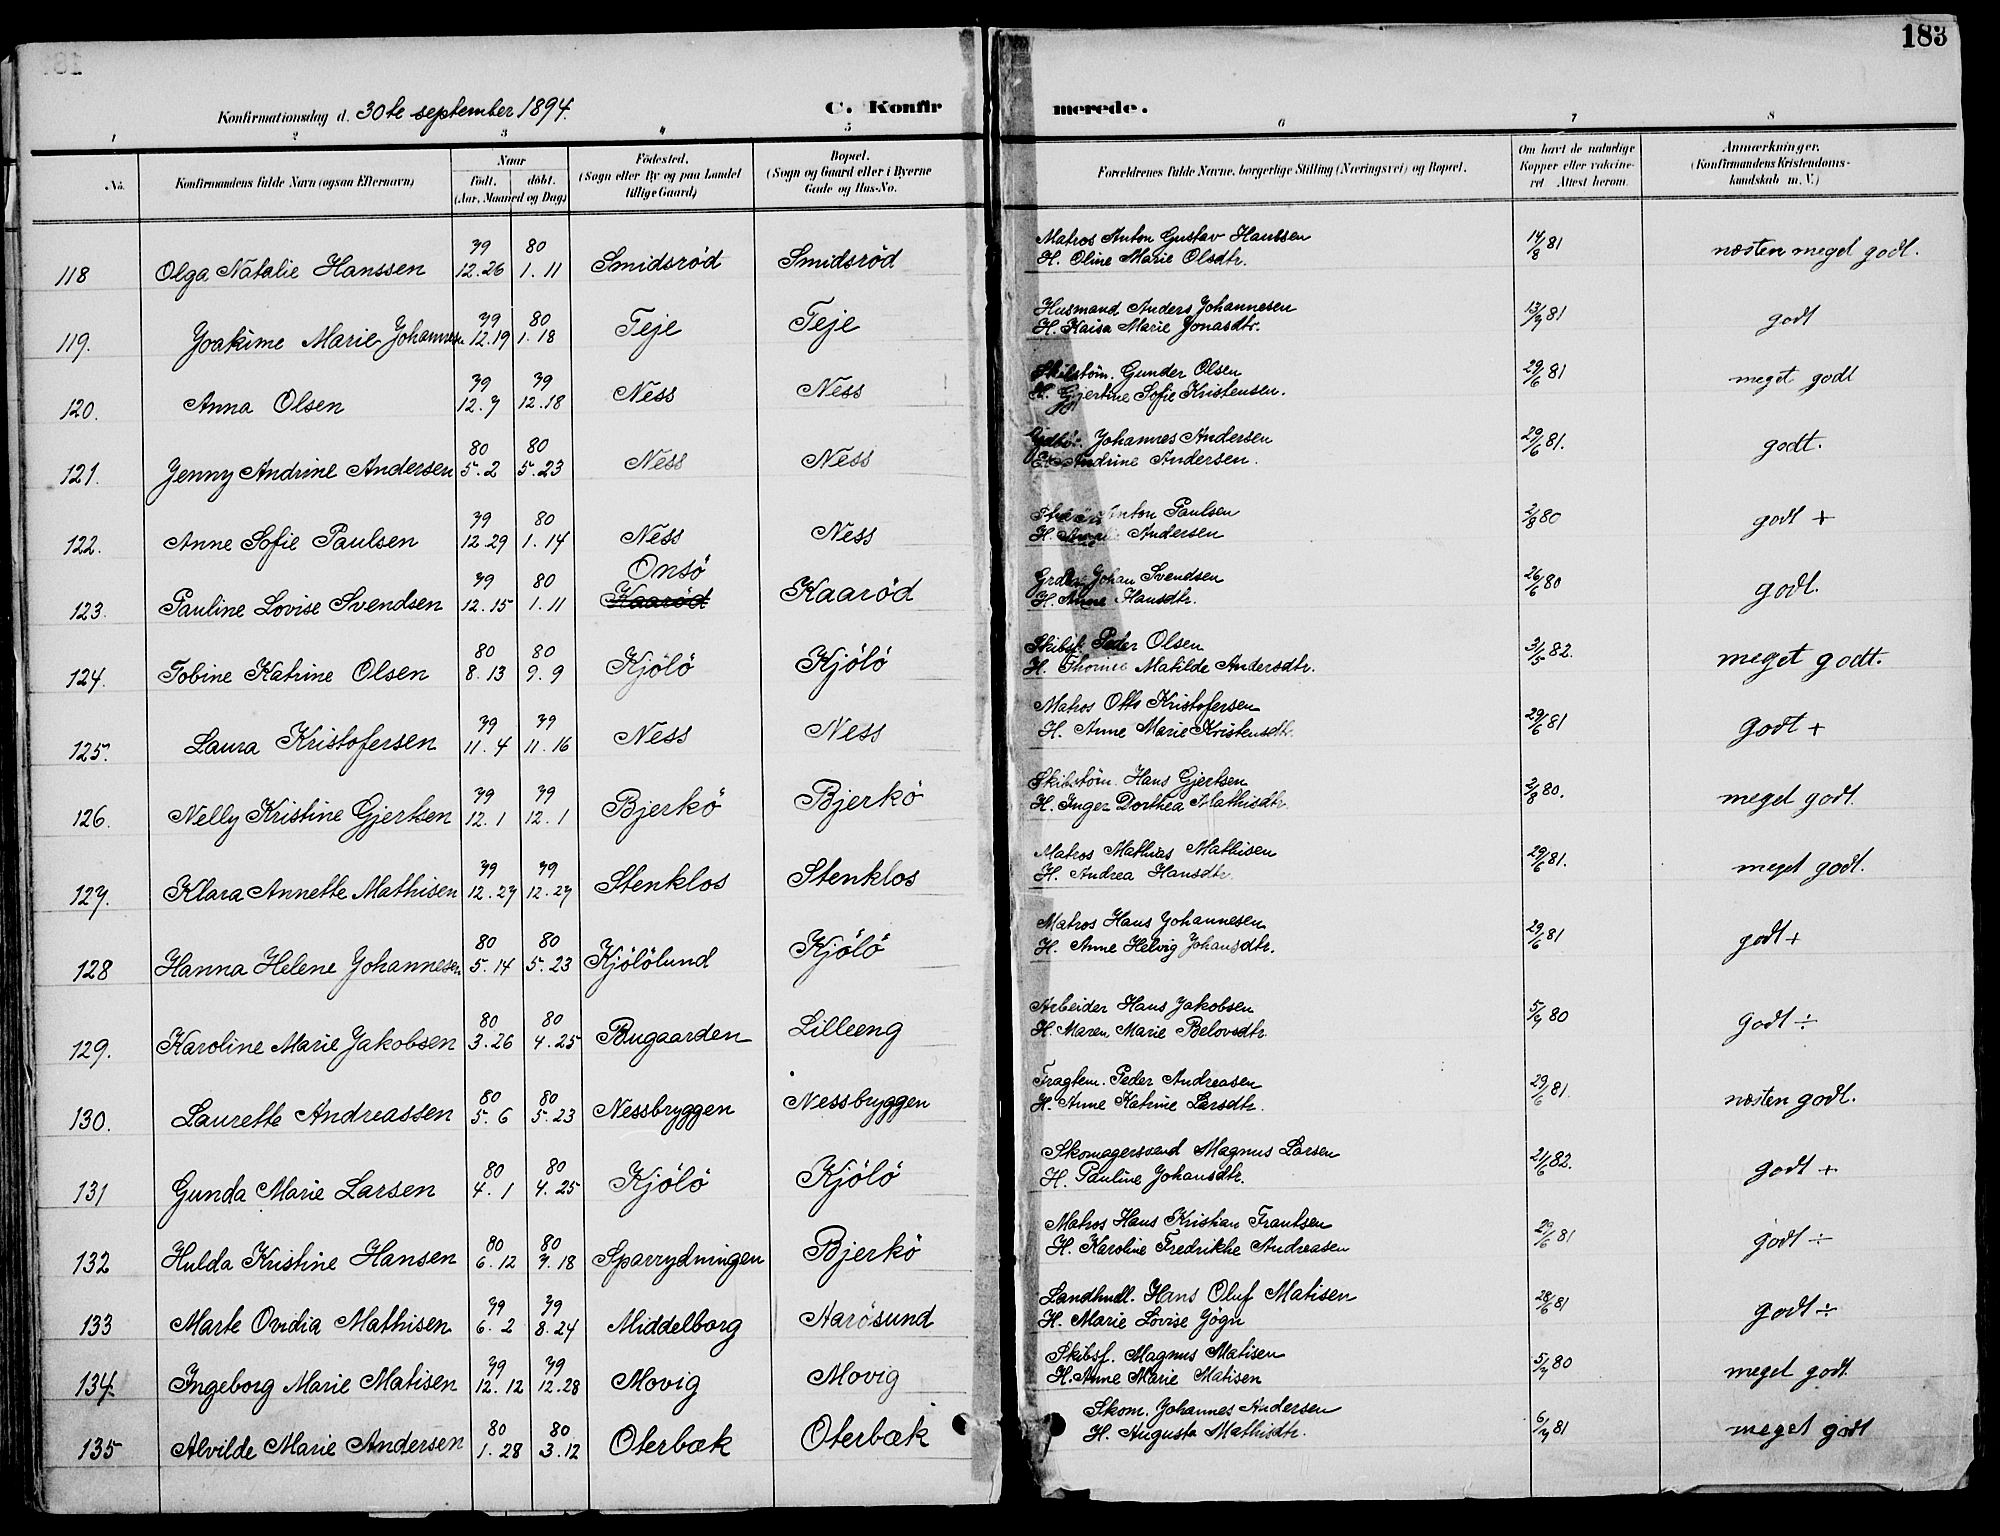 183
Konfirmationsdag d. 30te september 1894.
C. Konfirmerede.
1 2 3 4 5 6 7 8
No. Konfirmandens fulde Navn (ogsaa Efternavn) Naar Födt. döbt. (Aar, Maaned og Dag) Födested. (Sogn eller By og paa Landet tillige Gaard) Bopæl. (Sogn og Gaard eller i Byerne Gade og Hus-No. Forældrenes fulde Navne, borgerlige Stilling (Næringsvei) og Bopæl. Om havt de naturlige Kopper eller vakcineret Attest herom. Anmærkninger. (Konfirmandens Kristendomskundskab m. V.)
118 Olga Natalie Hanssen 79 12.26 80 1.11 Smidsröd Smidsröd Matros Anton Gustav Hanssen H. Oline Marie Olsdtr. 14/8 81 næsten meget godt.
119. Joakime Marie Johannesen 79 12.19 80 1.18 Teje Teje Husmand Anders Johannesen H. Kaisa Marie Jonasdtr. 13/7 81 godt
120. Anna Olsen 79 12.7 79 12.18 Ness Ness Skibstöm. Gunder Olsen H. Gjertine Sofie Kristensen. 29/6 81 meget godt
121. Jenny Andrine Andersen 80 5.2 80 5.23 Ness Ness Johannes Andersen Andrine Andersen. 29/6 81. godt.
122. Anne Sofie Paulsen 79 12.29 80 1.14 Ness Ness Anton Paulsen H. Andersen 2/8 80 godt +
123. Pauline Lovise Svendsen 79 12.15 80 1.11 Onsö Kaaröd Kaaröd Johan Svendsen H. Anne Hansdtr. 26/6 80 godt.
124. Tobine Katrine Olsen 80 8.13 80 9.9 Kjölö Kjölö Skibsf. Peder Olsen H. Thorine Matilde Andersdtr. 31/5 82. meget godt.
125. Laura Kristofersen 79 11.4 79 11.16 Ness Ness Matros Otto Kristofersen H. Anne Marie Kristensdtr. 29/6 81 godt +
126. Nelly Kristine Gjertsen 79 12.1 79 12.1 Bjerkö Bjerkö Skibstöm. Hans Gjertsen H. Inger Dorthea Mathisdtr. 2/8 80. meget godt.
127. Klara Annette Mathisen 79 12.27 79 12.27 Stenklos Stenklos Matros Mathias Mathisen H. Andrea Hansdtr. 29/6 81. meget godt.
128 Hanna Helene Johannesen 80 5.14 80 5.23 Kjölölund Kjölö Matros Hans Johannesen H. Anne Helvig Johansdtr. 29/6 81 godt +
129. Karoline Marie Jakobsen 80 3.26 80 4.25 Bugaarden Lilleeng Arbeider Hans Jakobsen H. Maren Marie Belovsdtr. 5/7 80 godt ÷
130. Laurette Andreassen 80 5.6 80 5.23 Nessbryggen Nessbryggen Fragtem. Peder Andreasen H. Anne Katrine Larsdtr. 29/6 81. næsten godt.
131 Gunda Marie Larsen 80 4.1 80 4.25 Kjölö Kjölö Skomagersvend Magnus Larsen H. Pauline Johansdtr. 21/6 82. godt +
132 Hulda Kristine Hansen 80 6.12 80 7.18 Sparrydningen Bjerkö Matros Hans Kristian Frantsen H. Karoline Fredrikke Andreasen 29/6 81 godt ÷
133 Marte Ovidia Mathisen 79 6.2 79 8.24 Middelborg Aarösund Landhndl. Hans Oluf Matisen H. Marie Lovise Gögn 28/6 81 godt ÷
134. Ingeborg Marie Matisen 79 12.12 79 12.28 Movig Movig Skibsf. Magnus Matisen H. Anne Marie Matisen 5/7 80 meget godt.
135 Alvilde Marie Andersen 80 1.28 80 3.12 Oterbæk Oterbæk Skom. Johannes Andersen H. Augusta Mathisdtr. 6/7 81 meget godt